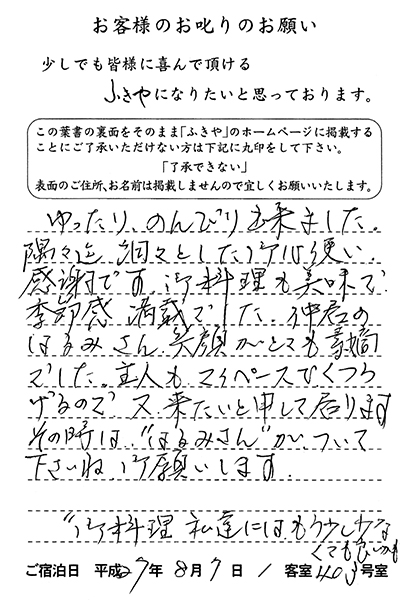 お客様のお叱りのお願い
少しでも皆様に喜んで頂ける
ふきやになりたいと思っております。
この葉書の裏面をそのまま「ふきや」のホームページに掲載する
ことにご了承いただけない方は下記に丸印をして下さい。
「了承できない」
表面のご住所、お名前は掲載しませんので宜しくお願いいたします。
ゆったり、のんびり出来ました。
隅々迄 細々とした御心使い、
感謝です。御料理も美味で
季節感 満載でした。仲居の
はるみさん、笑顔がとても素敵
でした。主人も マイペースでくつろ
げるので 又 来たいと申して居ります
その時は、"はるみさん"が、ついて
下さいね 御願いします。
"御料理 私達にはもう少し少な
くても良いかも
ご宿泊日 平成27年 8月7日 / 客室403号室